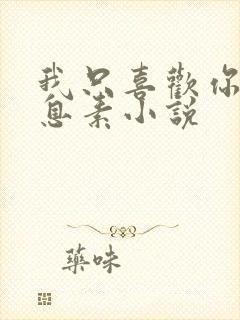 我只喜歡你
息素小說
藥味